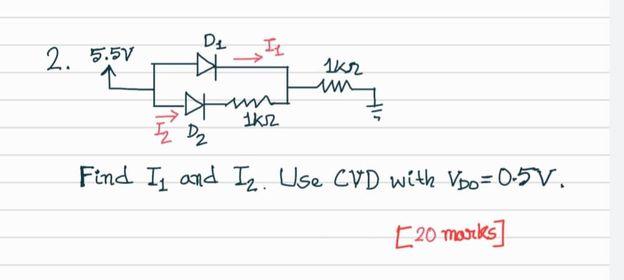 2. 5.5V D1 I1
1kΩ
I2 D2 1kΩ
Find I1 and I2. Use CVD with VDO=0.5V.
[20 marks]